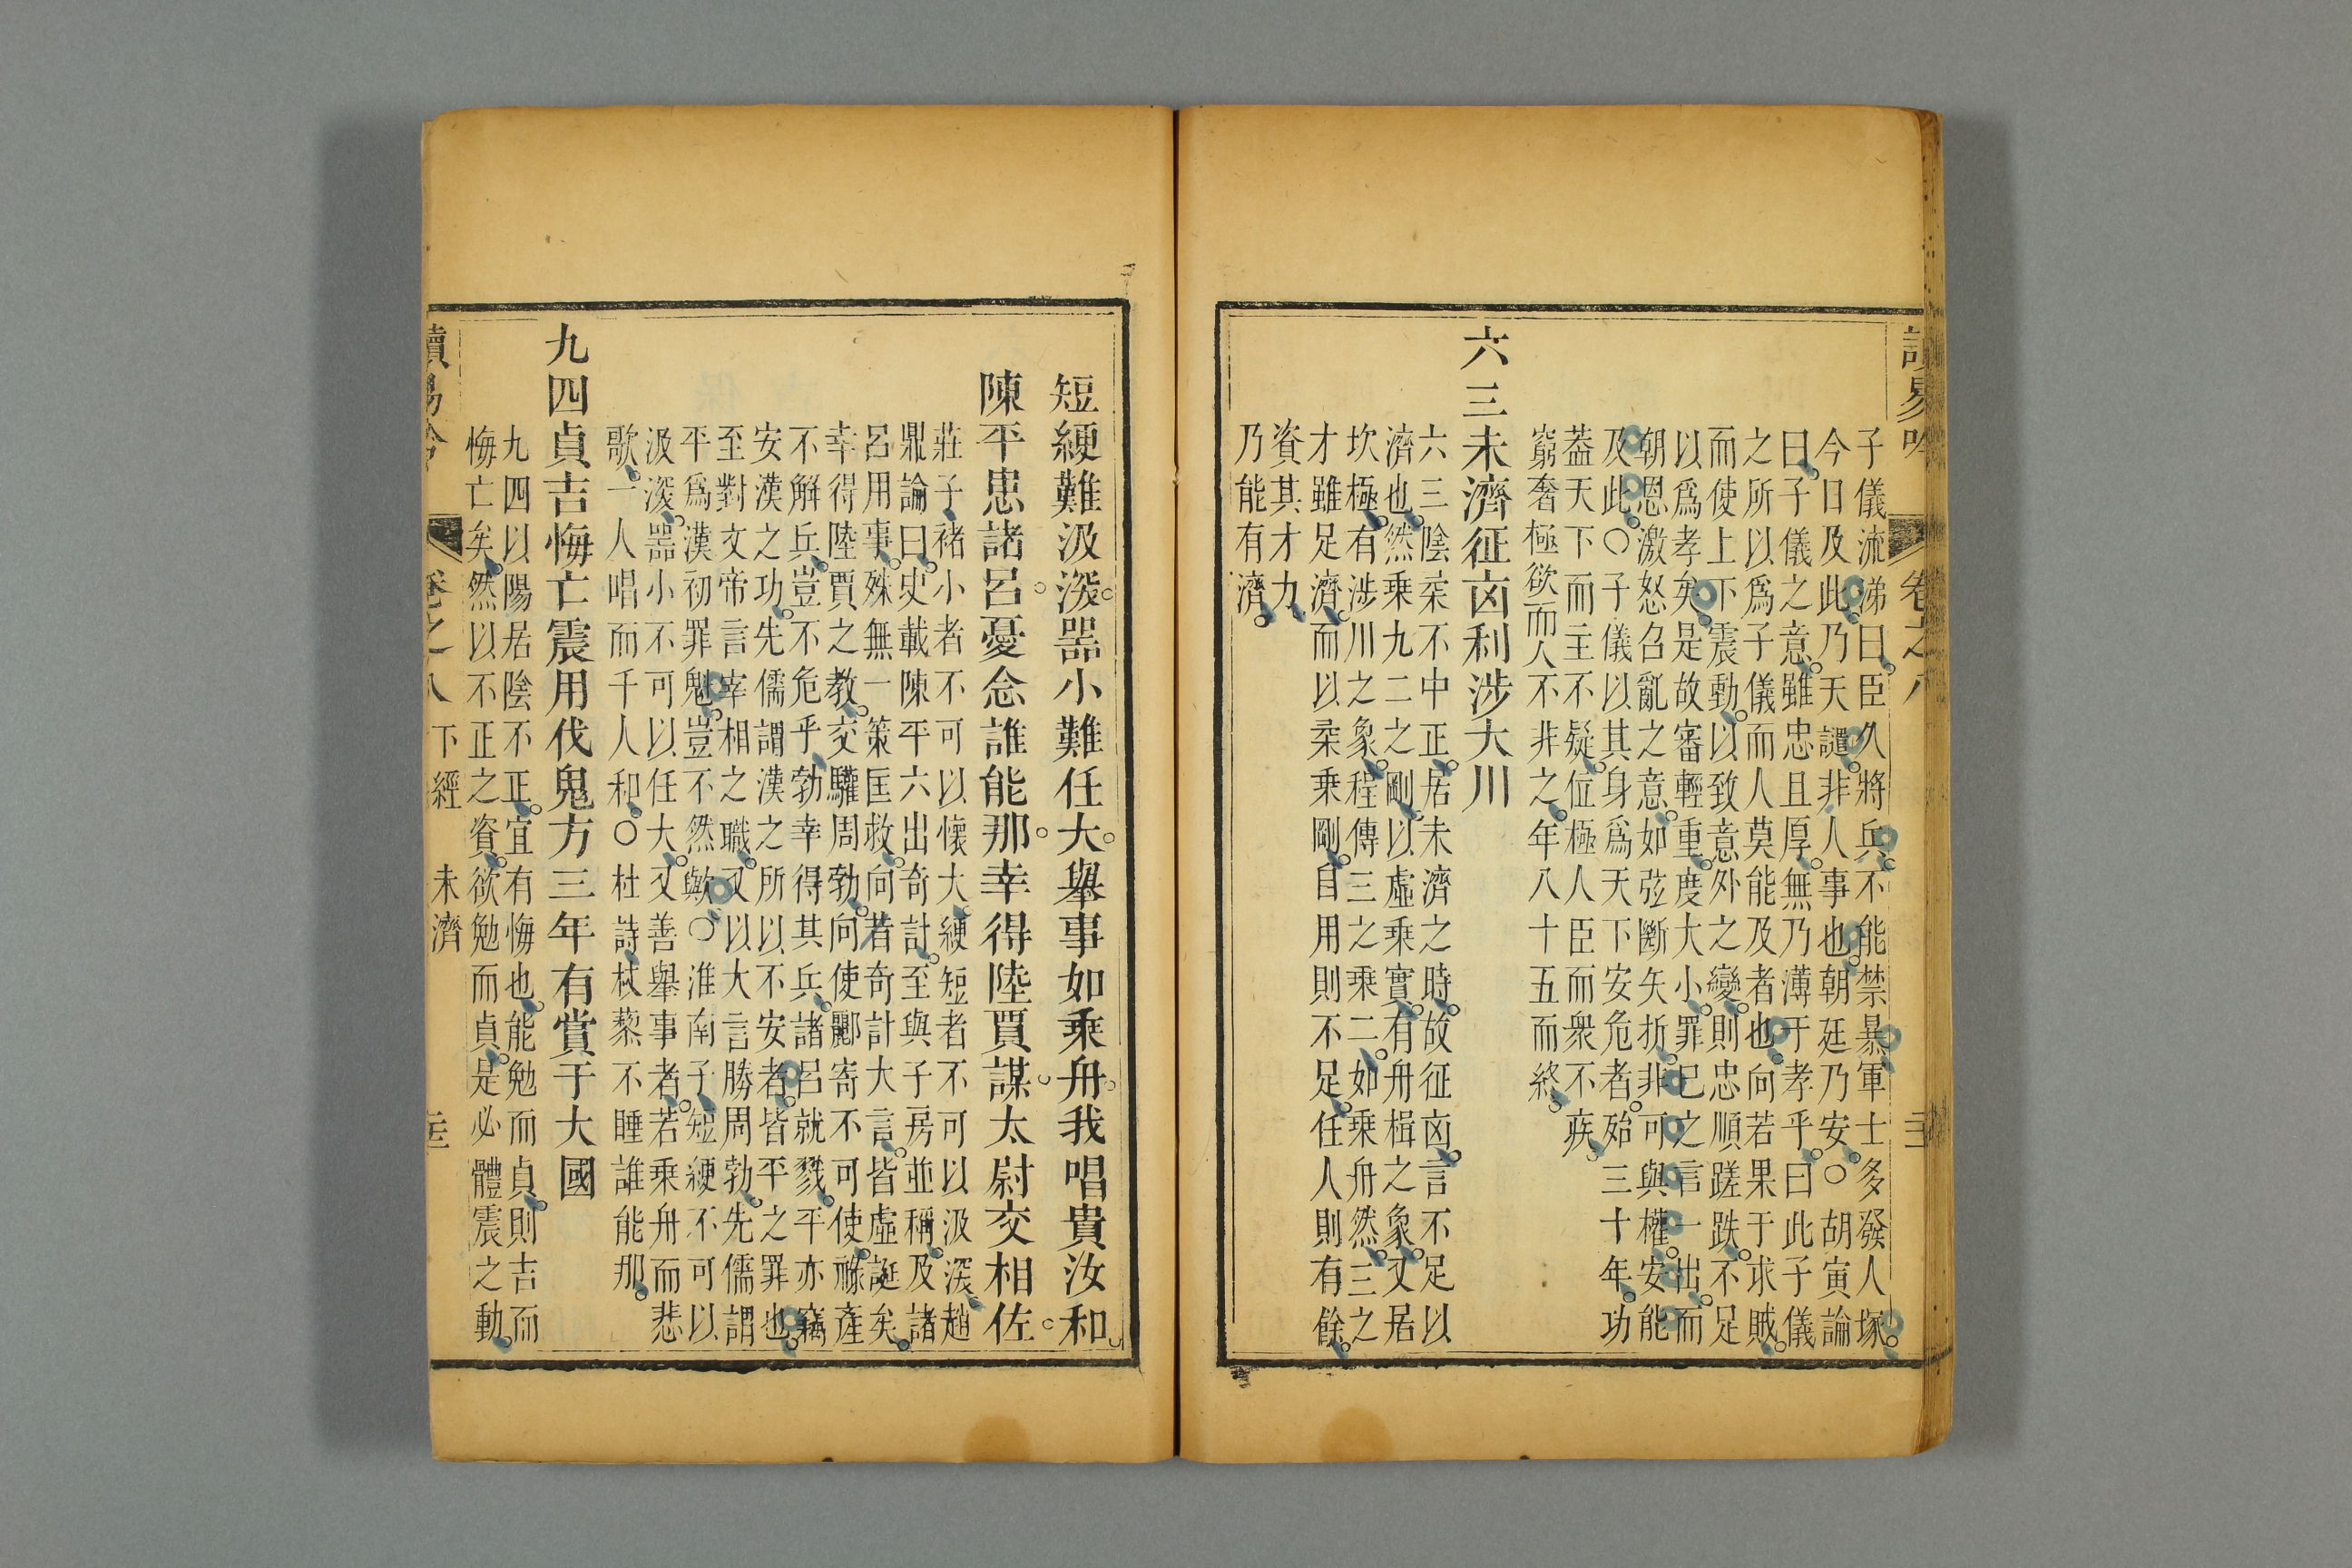 子儀流涕曰臣久將兵不能禁暴軍士多發人塚
今日及此乃天譴非人事也朝廷乃安○胡寅論
曰子儀之意雖忠且厚無乃薄于孝乎曰此子儀
之所以爲子儀而人莫能及者也向若果于求賊
而使上下震動以致意外之變則忠順蹉跌不足
以爲孝矣是故審輕重度大小罪己之言一出而
朝恩激怒召亂之意如弦斷矢折非可與權安能
及此○子儀以其身爲天下安危者殆三十年功
葢天下而主不疑位極人臣而衆不疾
窮奢極欲而人不非之年八十五而終
六三未濟征凶利涉大川
六三陰柔不中正居未濟之時故征凶言不足以
濟也然乗九二之剛以虛乗實有舟楫之象又居
坎極有涉川之象程傳三之乗二如乗舟然三之
才雖足濟而以柔乗剛自用則不足任人則有餘
資其才力
乃能有濟
短綆難汲深器小難任大舉事如乗舟我唱貴汝和
陳平患諸呂憂念誰能那幸得陸賈謀太尉交相佐
莊子褚小者不可以懷大綆短者不可以汲深趙
鼎論曰史載陳平六出奇計至與子房並稱及諸
呂用事殊無一策匡救向若奇計大言皆虛誕矣
幸得陸賈之教交驩周勃向使酈寄不可使祿產
不解兵豈不危乎勃幸得其兵諸呂就戮平亦竊
安漢之功先儒謂漢之所以不安者皆平之罪也
至對文帝言宰相之職又以大言勝周勃先儒謂
平爲漢初罪魁豈不然歟○淮南子短綆不可以
汲深器小不可以任大又善舉事者若乗舟而悲
歌一人唱而千人和○杜詩杖藜不睡誰能那
九四貞吉悔亡震用伐鬼方三年有賞于大國
九四以陽居陰不正宜有悔也能勉而貞則吉而
悔亡矣然以不正之資欲勉而貞是必體震之動
讀易吟 卷之八 下經 未濟